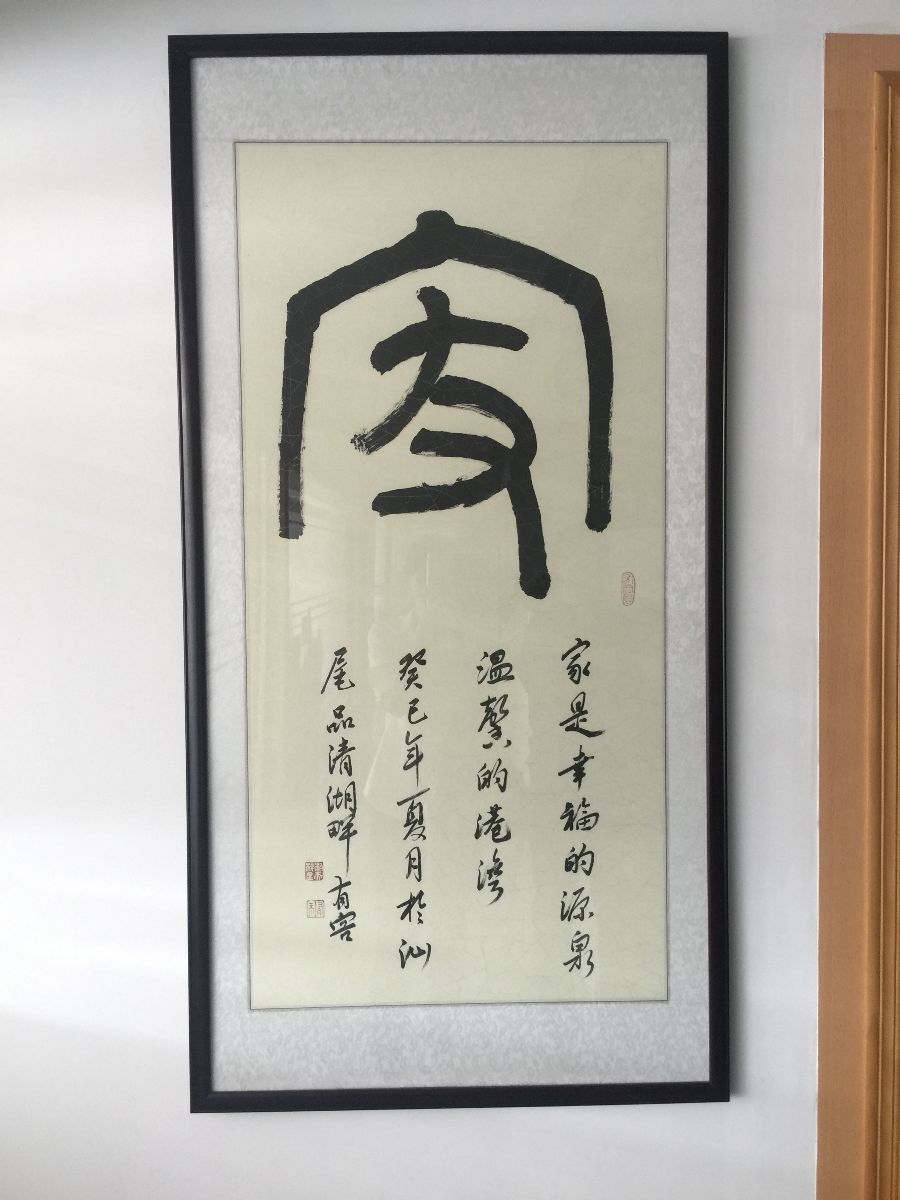 家
家是幸福的源泉
温馨的港湾
癸巳年夏月於汕
尾品清湖畔有容